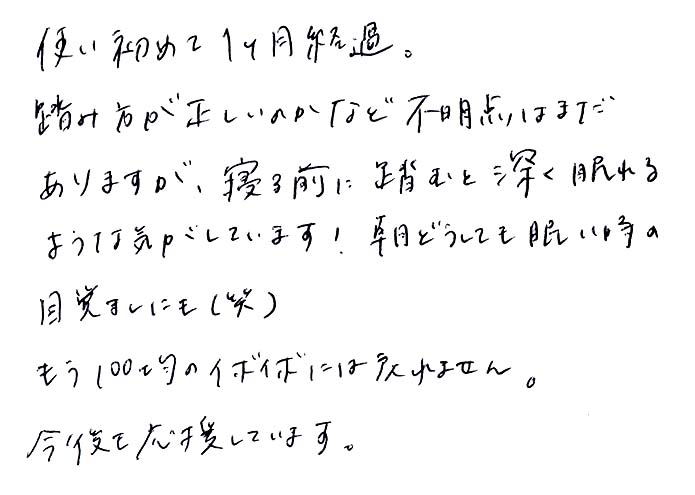 使い初めて1ヶ月経過。
踏み方が正しいのかなど不明点はまだ
ありますが、寝る前に踏むと深く眠れる
ような気がしています！朝どうしても眠い時の
目覚ましにも(笑)
もう100均のイボイボには戻れません。
今後も応援しています。